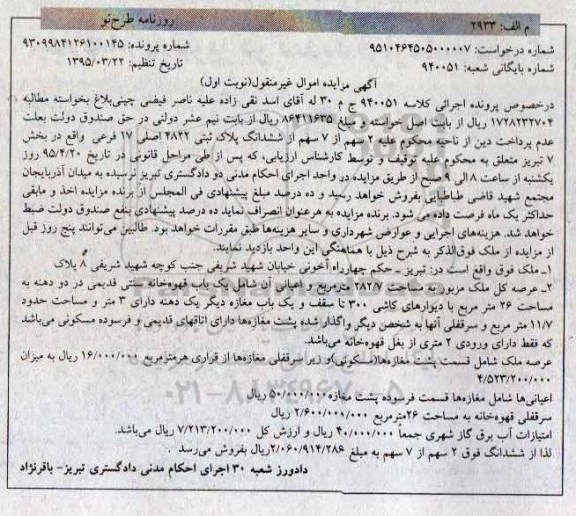 م الف: ۲۹۳۳
روزنامه طرح‌نو
شماره درخواست: ۹۵۱۰۴۶۴۵۰۵۰۰۰۰۰۷
شماره پرونده: ۹۳۰۹۹۸۴۱۲۶۱۰۰۱۴۵
شماره بایگانی شعبه: ۹۴۰۰۵۱
تاریخ تنظیم: ۱۳۹۵/۰۳/۲۲
آگهی مزایده اموال غیرمنقول(نوبت اول)
درخصوص پرونده اجرائی کلاسه ۹۴۰۰۵۱ ج م ۳۰ له آقای اسد نقی زاده علیه ناصر فیضی چینی‌بلاغ بخواسته مطالبه
۱۷۲۸۲۳۲۷۰۴ ریال از بابت اصل خواسته و مبلغ ۸۶۴۱۱۶۳۵ ریال از بابت نیم عشر دولتی در حق صندوق دولت بعلت
عدم پرداخت دین از ناحیه محکوم علیه ۲ سهم از ۷ سهم از ششدانگ پلاک ثبتی ۴۸۲۲ اصلی ۱۷ فرعی واقع در بخش
۷ تبریز متعلق به محکوم علیه توقیف و توسط کارشناس ارزیابی، که پس از طی مراحل قانونی در تاریخ ۹۵/۴/۲۰ روز
یکشنبه از ساعت ۸ الی ۹ صبح از طریق مزایده در واحد اجرای احکام مدنی دو دادگستری تبریز نرسیده به میدان آذربایجان
مجتمع شهید قاضی طباطبایی بفروش خواهد رسید و ده درصد مبلغ پیشنهادی فی المجلس از برنده مزایده اخذ و مابقی
حداکثر یک ماه فرصت داده می شود. برنده مزایده به هرعنوان انصراف نماید ده درصد پیشنهادی بنفع صندوق دولت ضبط
خواهد شد. هزینه‌های اجرایی و عوارض شهرداری و سایر هزینه‌ها طبق مقررات خواهد بود. طالبین می‌توانند پنج روز قبل
از مزایده از ملک فوق‌الذکر به شرح ذیل با هماهنگی این واحد بازدید نمایند.
۱ـ ملک فوق واقع است در: تبریز ـ حکم چهارراه آخونی خیابان شهید شریفی جنب کوچه شهید شریفی ۸ پلاک
۲ـ عرصه کل ملک مزبور به مساحت ۲۸۲/۷ مترمربع و اعیانی آن شامل یک باب قهوه‌خانه سنتی قدیمی در دو دهنه به
مساحت ۲۶ متر مربع با دیوارهای کاشی ۳۰۰ تا سقف و یک باب مغازه دیگر یک دهنه دارای ۳ متر و مساحت حدود
۱۱/۷ متر مربع و سرقفلی آنها به شخص دیگر واگذار شده پشت مغازه‌ها دارای اتاقهای قدیمی و فرسوده مسکونی می‌باشد
که فقط دارای ورودی ۲ متری از بغل قهوه‌خانه می‌باشد.
عرصه ملک شامل قسمت پشت مغازه‌ها(مسکونی)و زیر سرقفلی مغازه‌ها از قراری هرمترمربع ۱۶/۰۰۰/۰۰۰ ریال به میزان
۴/۵۲۳/۲۰۰/۰۰۰
اعیانی‌ها شامل مغازه‌ها قسمت فرسوده پشت مغازه ۵۰/۰۰۰/۰۰۰ ریال
سرقفلی قهوه‌خانه به مساحت ۲۶مترمربع ۲/۶۰۰/۰۰۰/۰۰۰ ریال
امتیازات آب برق گاز شهری جمعاً ۴۰/۰۰۰/۰۰۰ ریال و ارزش کل ۷/۲۱۳/۲۰۰/۰۰۰ ریال می‌باشد.
لذا از ششدانگ فوق ۲ سهم از ۷ سهم به مبلغ ۲/۰۶۰/۹۱۴/۲۸۶ریال بفروش می‌رسد .
دادورز شعبه ۳۰ اجرای احکام مدنی دادگستری تبریز- باقرنژاد